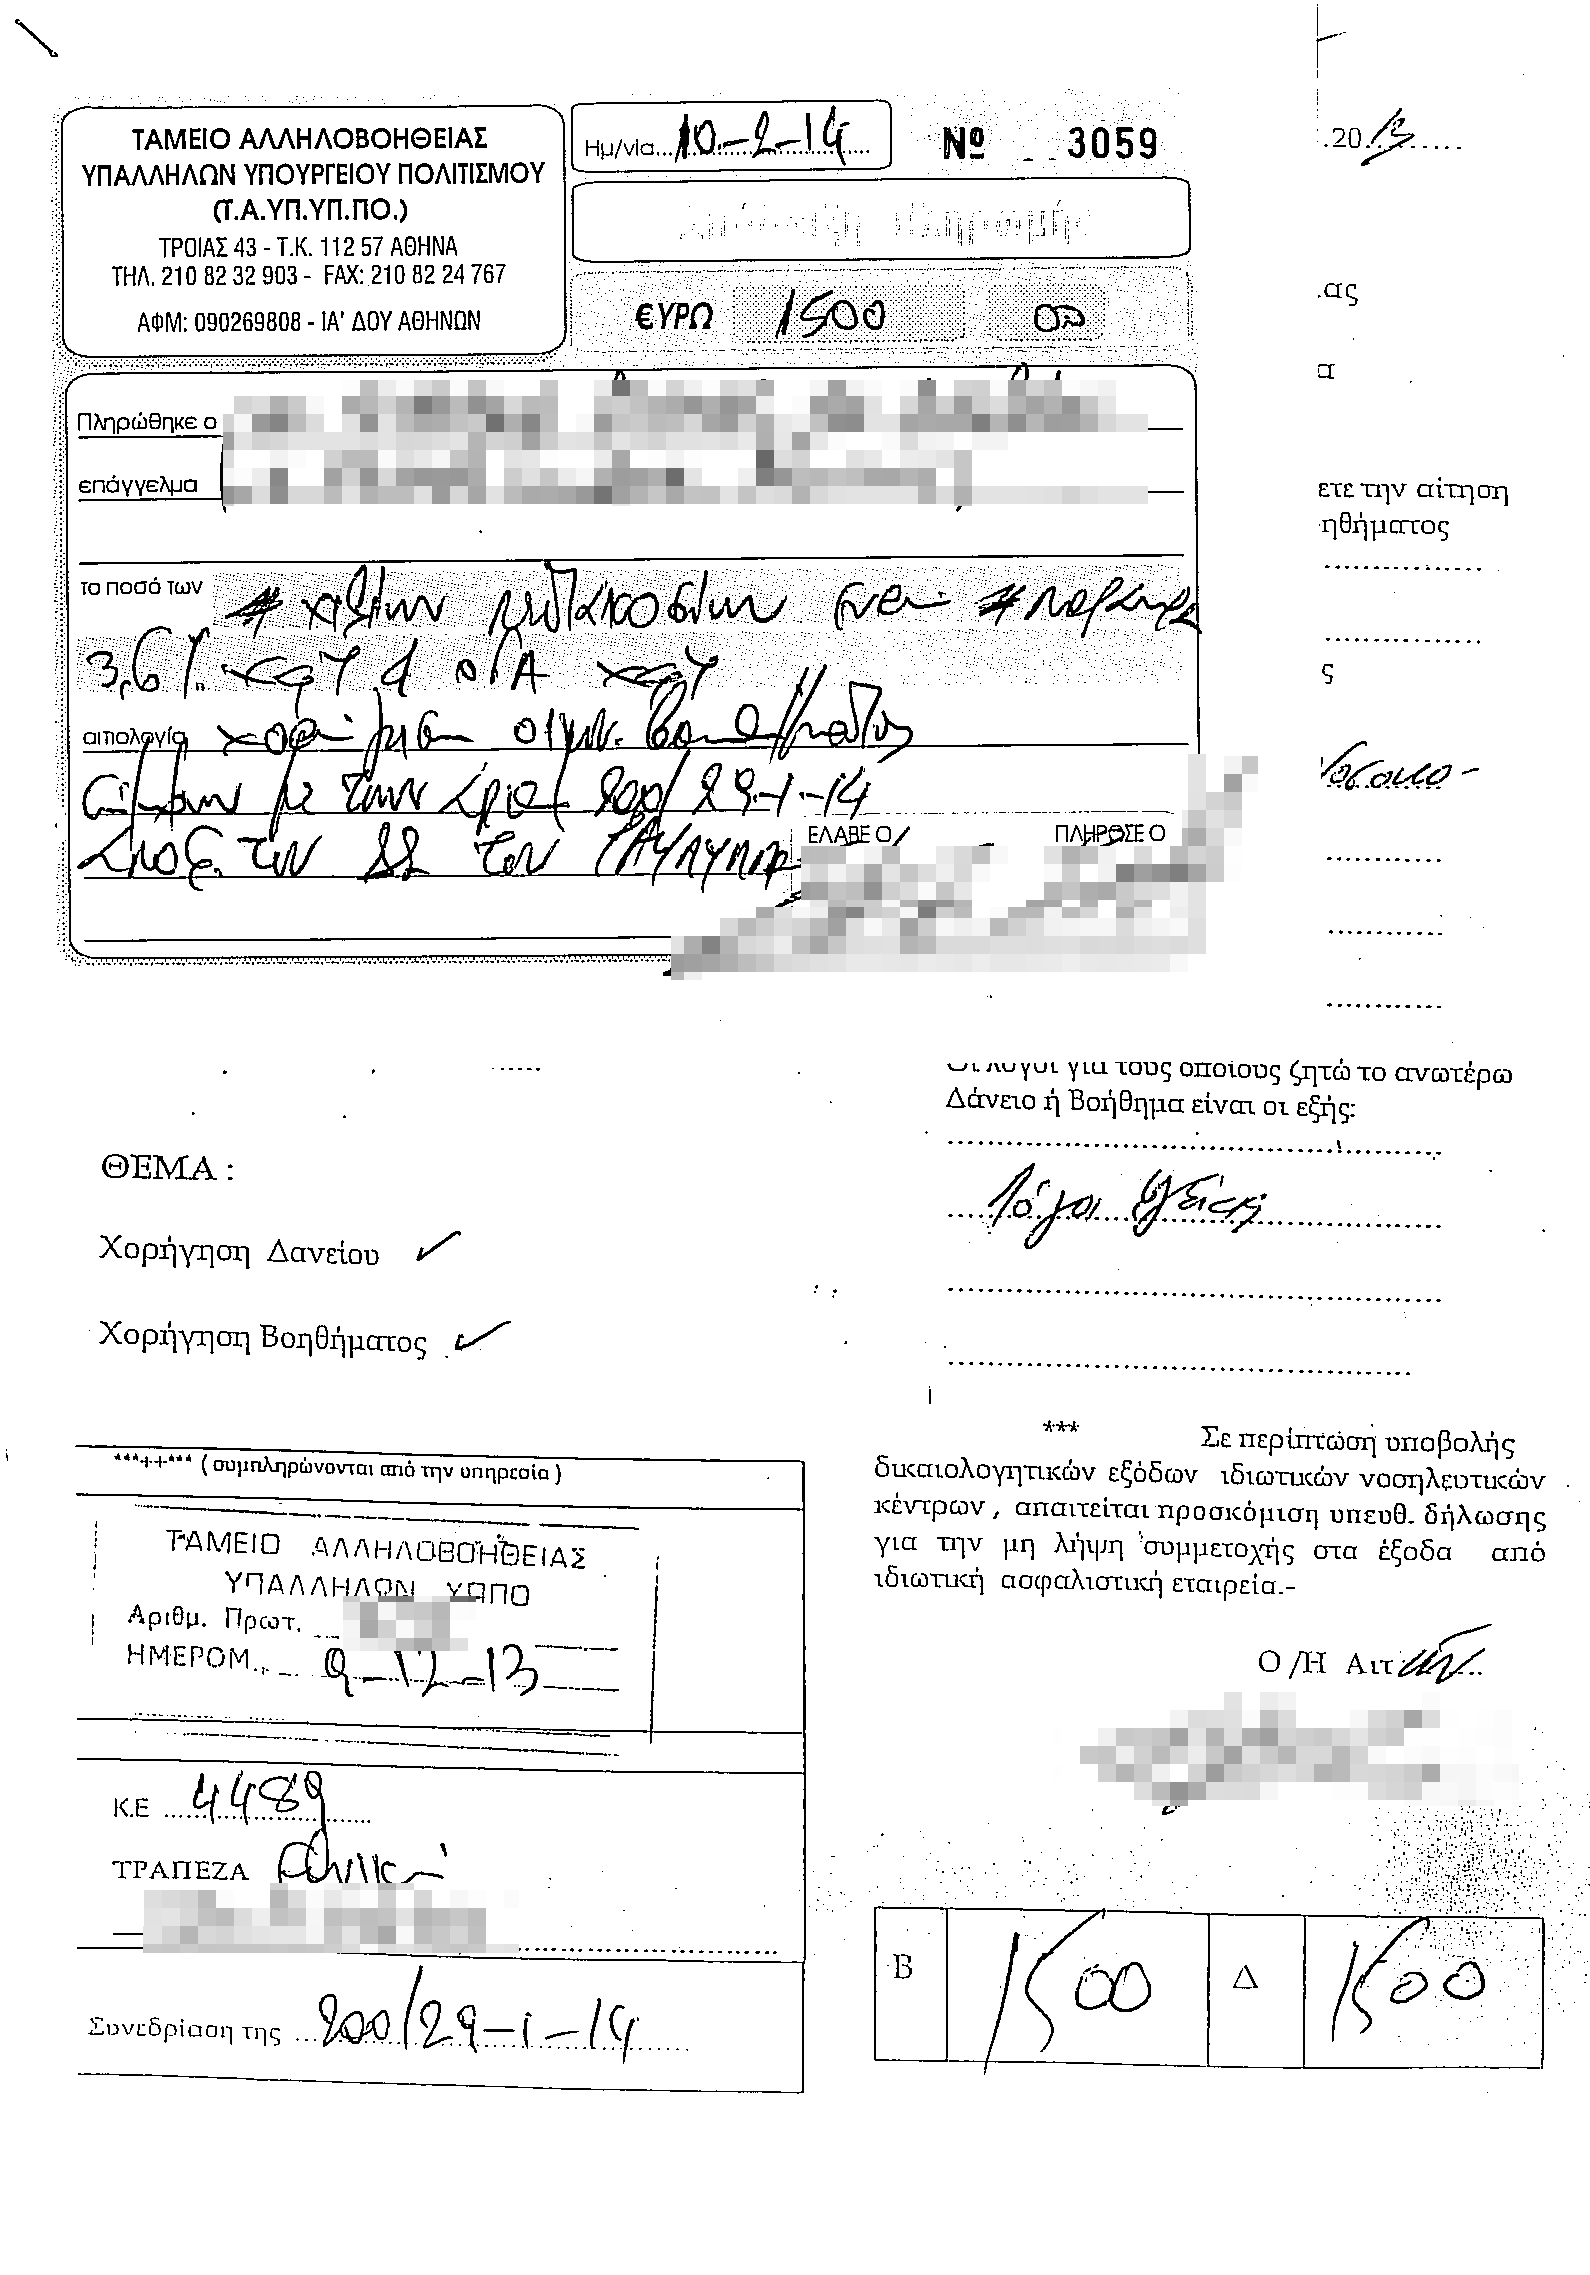 ΤΑΜΕΙΟ ΑΛΛΗΛΟΒΟΗΘΕΙΑΣ
ΥΠΑΛΛΗΛΩΝ ΥΠΟΥΡΓΕΙΟΥ ΠΟΛΙΤΙΣΜΟΥ
(Τ.Α.ΥΠ.ΥΠ.ΠΟ.)
ΤΡΟΙΑΣ 43 - Τ.Κ. 112 57 ΑΘΗΝΑ
ΤΗΛ. 210 82 32 903 - FAX: 210 82 24 767
ΑΦΜ: 090269808 - ΙΑ' ΔΟΥ ΑΘΗΝΩΝ
Ημ/νία 10-2-14
Νº 3059
Απόδειξη Πληρωμής
ΕΥΡΩ 1500 00
Πληρώθηκε ο
επάγγελμα
το ποσό των # χιλίων πεντακοσίων ευρώ #
3,6%
αιτιολογία
200/29-1-14
των ΔΣ του
ΕΛΑΒΕ Ο ΠΛΗΡΩΣΕ Ο
.2013
.ας
α
ετε την αίτηση
ηθήματος
ς
Οι λόγοι για τους οποίους ζητώ το ανωτέρω
Δάνειο ή Βοήθημα είναι οι εξής:
Λόγοι υγείας
ΘΕΜΑ :
Χορήγηση Δανείου ✓
Χορήγηση Βοηθήματος ✓
*** Σε περίπτωση υποβολής
δικαιολογητικών εξόδων ιδιωτικών νοσηλευτικών
κέντρων , απαιτείται προσκόμιση υπευθ. δήλωσης
για την μη λήψη συμμετοχής στα έξοδα από
ιδιωτική ασφαλιστική εταιρεία.-
Ο /Η Αιτ
***++*** ( συμπληρώνονται από την υπηρεσία )
ΤΑΜΕΙΟ ΑΛΛΗΛΟΒΟΗΘΕΙΑΣ
ΥΠΑΛΛΗΛΩΝ ΥΠΠΟ
Αριθμ. Πρωτ.
ΗΜΕΡΟΜ. 9-12-13
Κ.Ε 4489
ΤΡΑΠΕΖΑ Εθνική
Συνεδρίαση της 200/29-1-14
Β 1500 Δ 1500